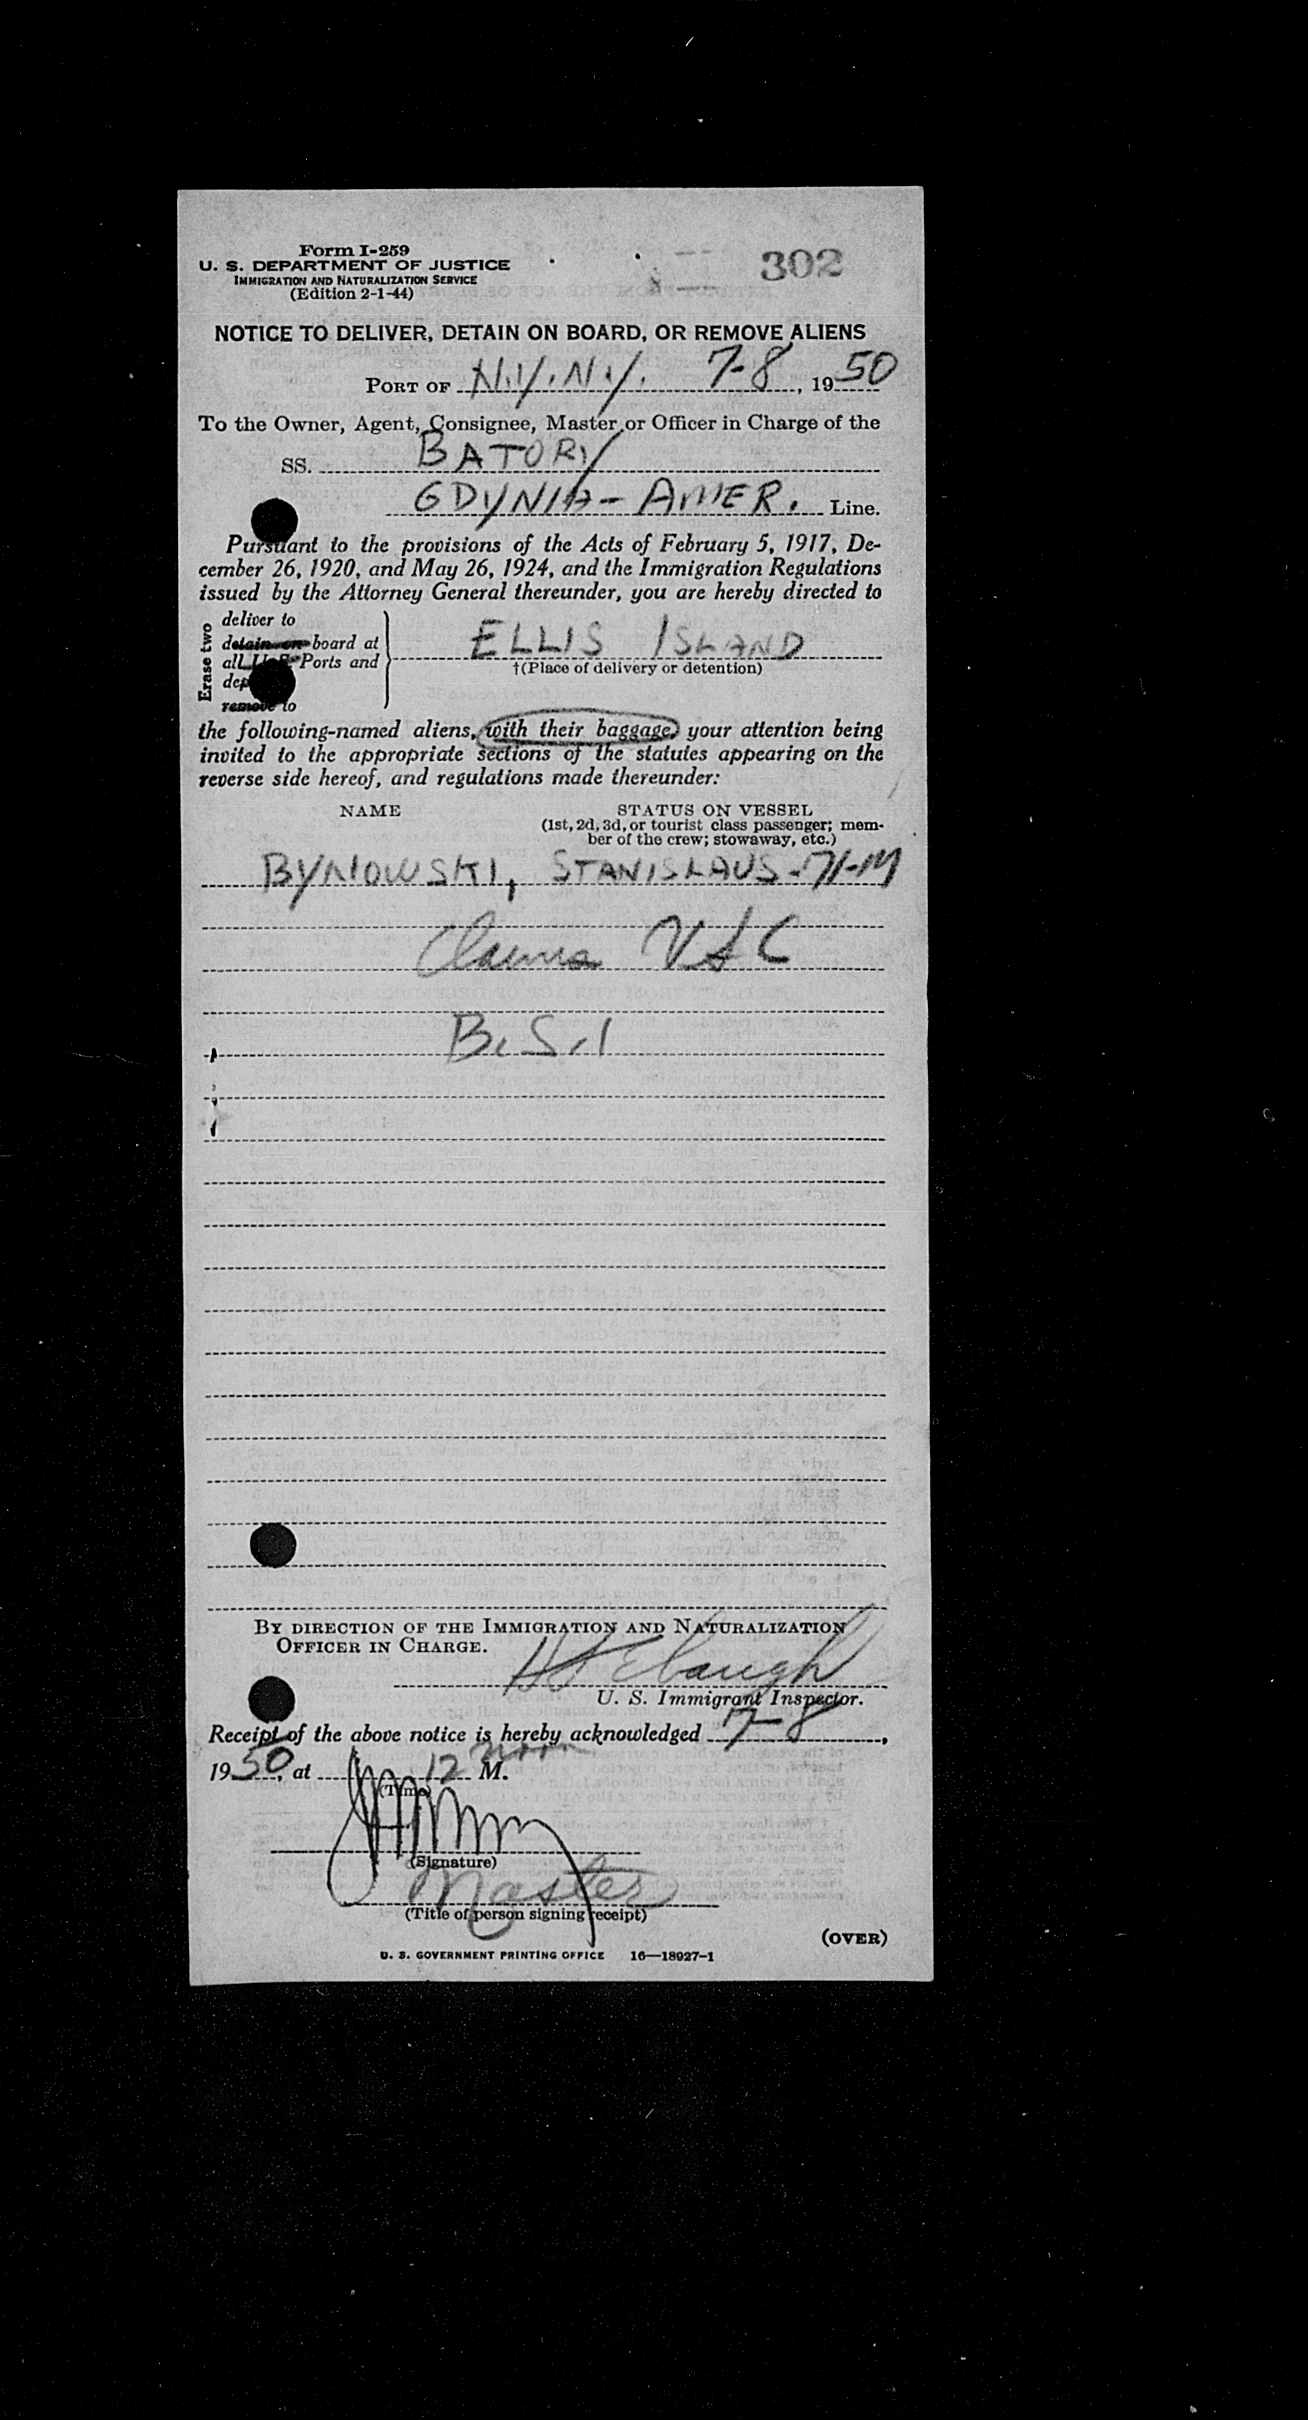 Form I-259
U. S. DEPARTMENT OF JUSTICE
IMMIGRATION AND NATURALIZATION SERVICE
(Edition 2-1-44)
302
NOTICE TO DELIVER, DETAIN ON BOARD, OR REMOVE ALIENS
PORT OF N.Y. N.Y. 7-8, 1950
To the Owner, Agent, Consignee, Master or Officer in Charge of the
SS. BATORY
GDYNIA-AMER. Line.
Pursuant to the provisions of the Acts of February 5, 1917, De-
cember 26, 1920, and May 26, 1924, and the Immigration Regulations
issued by the Attorney General thereunder, you are hereby directed to
Erase two
deliver to
detain on board at
all U.S. Ports and
remove to
ELLIS ISLAND
†(Place of delivery or detention)
the following-named aliens, with their baggage, your attention being
invited to the appropriate sections of the statutes appearing on the
reverse side hereof, and regulations made thereunder:
NAME
STATUS ON VESSEL
(1st, 2d, 3d, or tourist class passenger; mem-
ber of the crew; stowaway, etc.)
BYNOWSKI, STANISLAUS - 71-M
Claims USC
B.S.I
BY DIRECTION OF THE IMMIGRATION AND NATURALIZATION
OFFICER IN CHARGE.
Ebaugh
U. S. Immigrant Inspector.
Receipt of the above notice is hereby acknowledged 7-8,
1950, at 12 noon M.
(Time)
(Signature)
Master
(Title of person signing receipt)
(OVER)
U. S. GOVERNMENT PRINTING OFFICE 16—18927-1